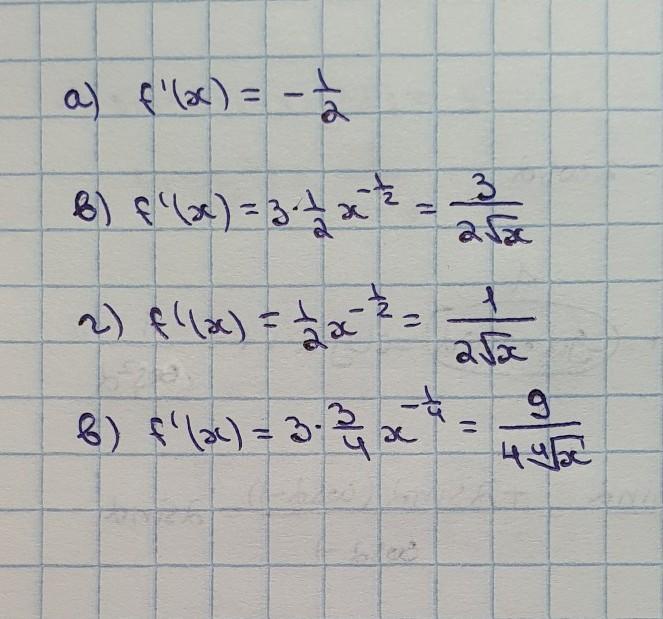 а) f'(x) = -1/2
в) f'(x) = 3·1/2 x^(-1/2) = 3/(2√x)
г) f'(x) = 1/2 x^(-1/2) = 1/(2√x)
в) f'(x) = 3·3/4 x^(-1/4) = 9/(4 ⁴√x)